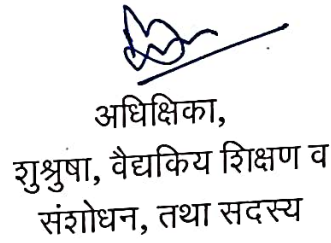 अधिक्षिका,
शुश्रुषा, वैद्यकिय शिक्षण व
संशोधन, तथा सदस्य